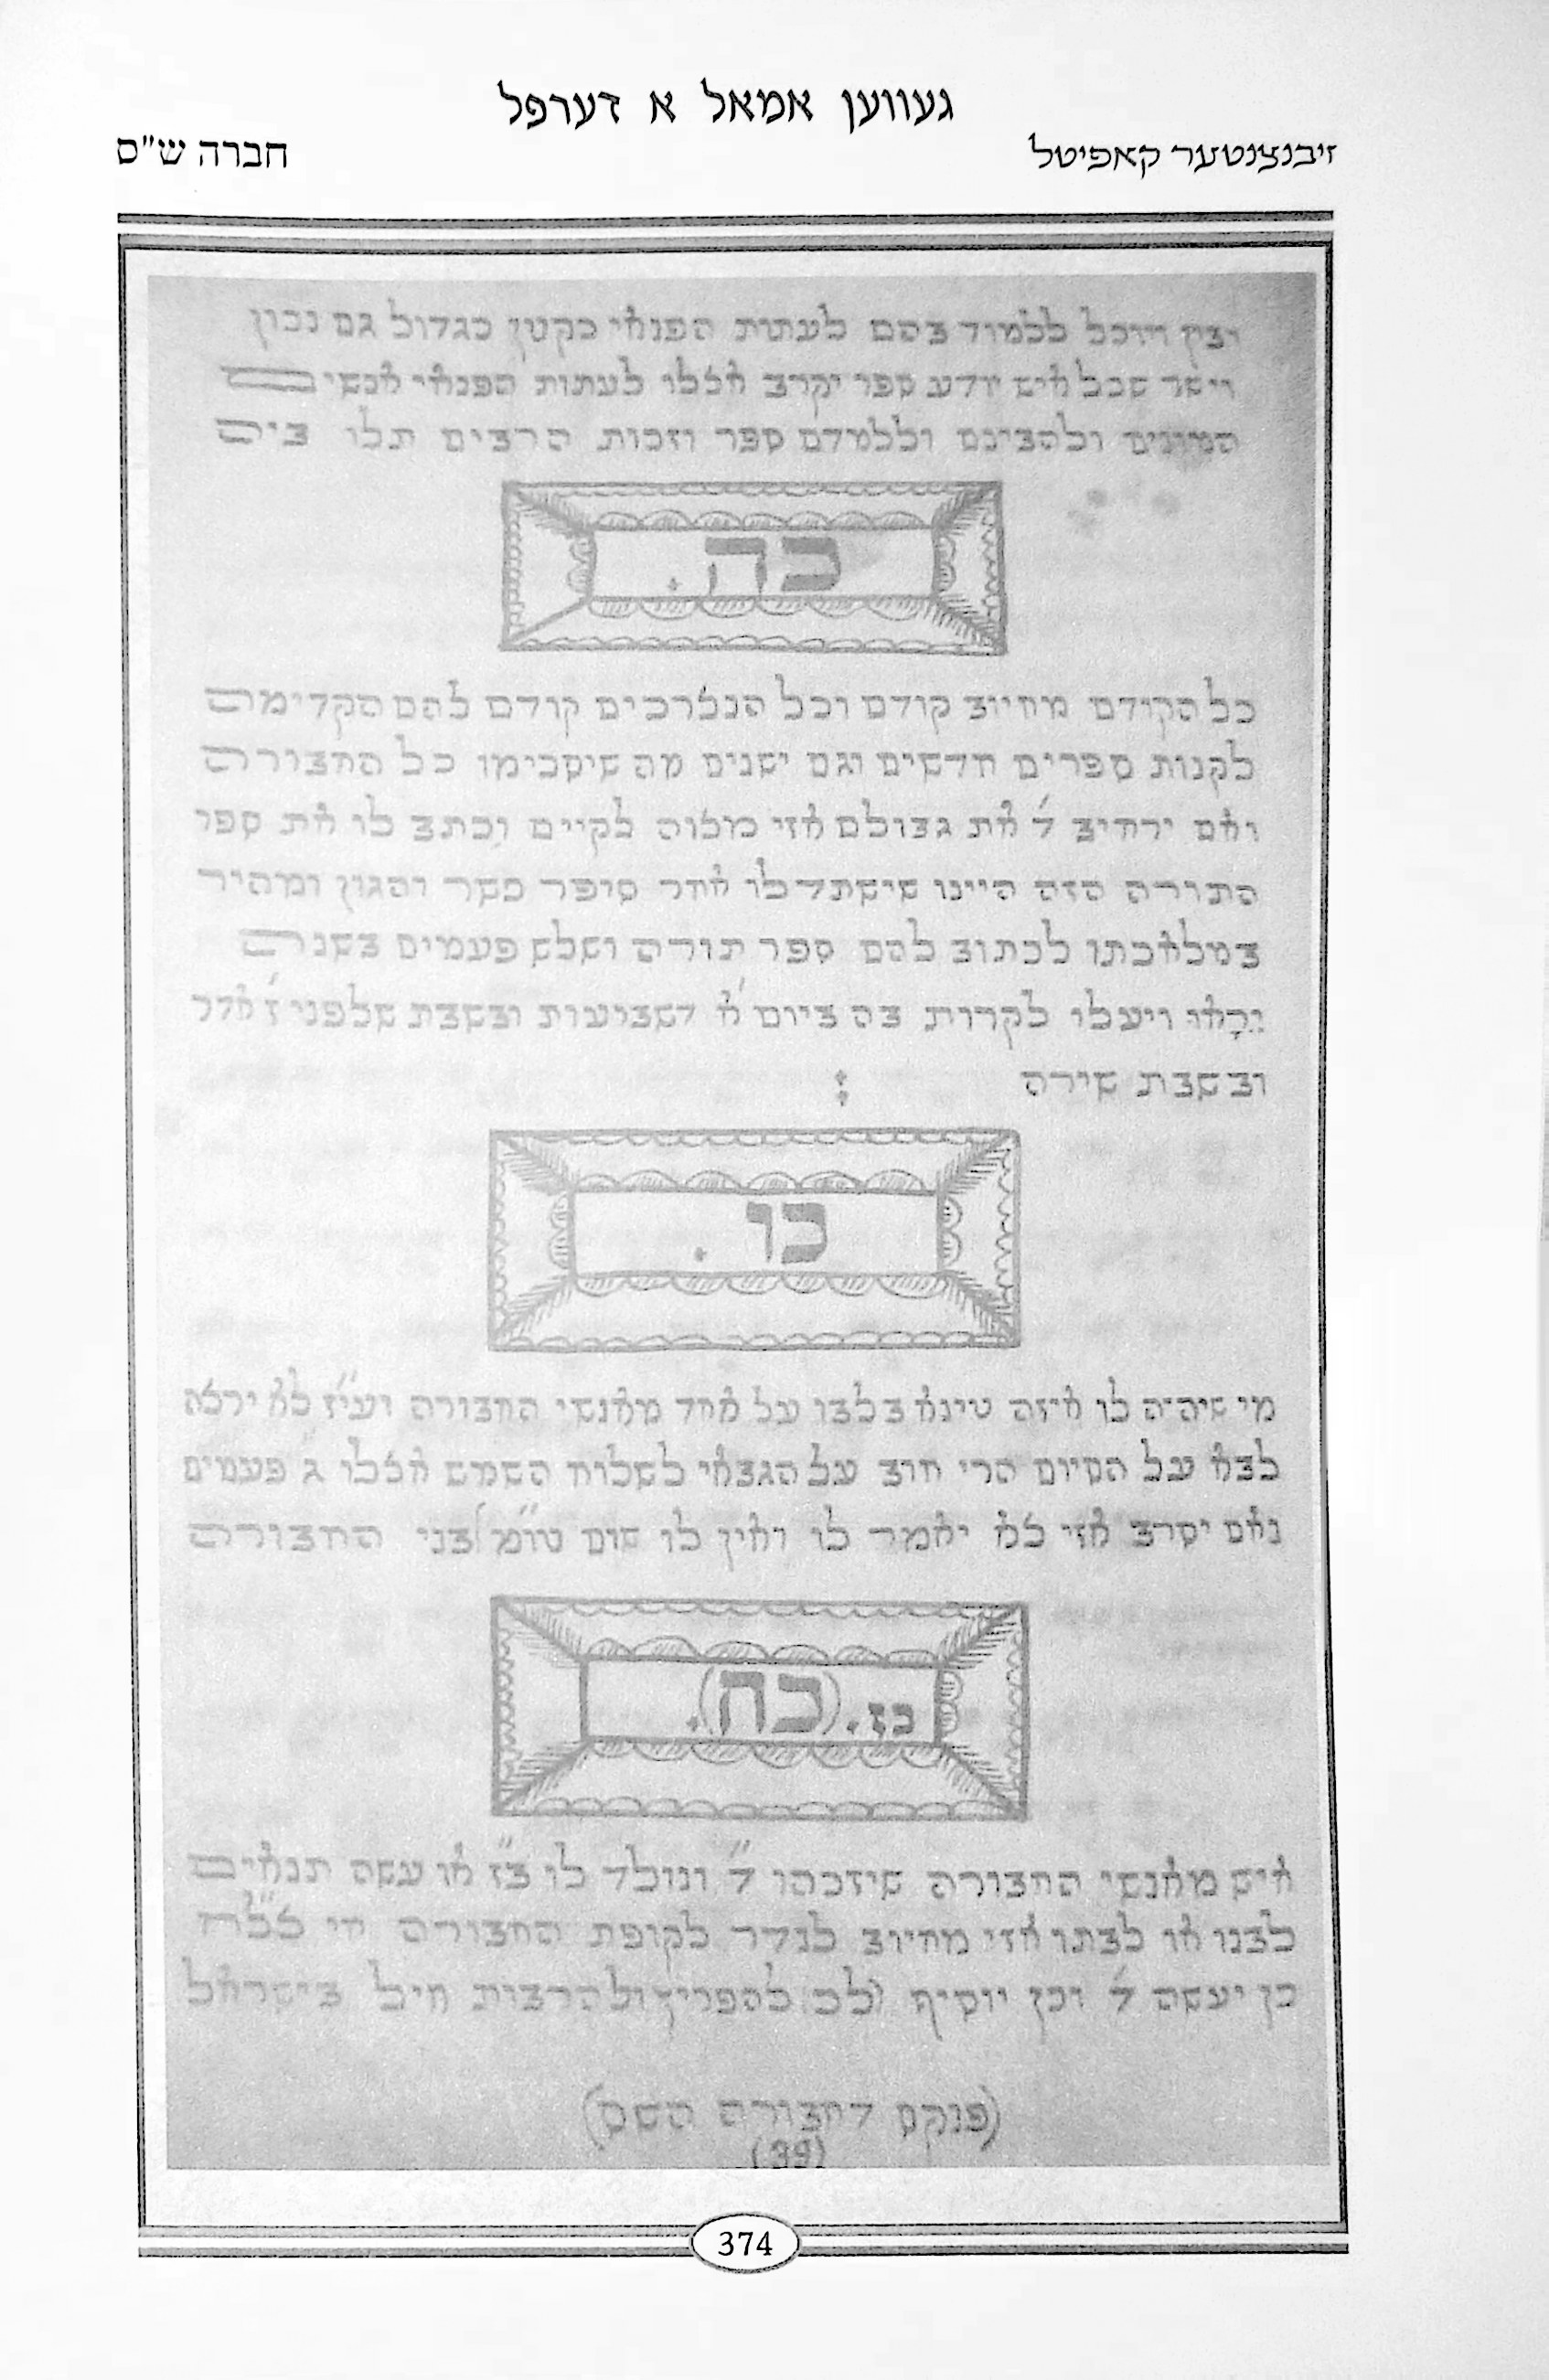 געווען אמאל א דערפל
זיבנצנטער קאפיטל
חברה ש"ס
ויוכל ללמוד בהם לעתות הפנאי כקטן כגדול גם נכון
וישר שכל איש יודע ספר יקרב אצלו לעתות הפנאי אנשי
המונים ולהבינם וללמדם ספר וזכות הרבים תלו ביה
כה.
כל הקודם מחיוב קודם וכל הנצרכים קודם להם הקדימה
לקנות ספרים חדשים וגם ישנים מה שיסכימו כל החבורה
ואם ירחיב ד' את גבולם אזי מצוה לקיים וכתב לו את ספר
התורה הזה היינו שישתדלו אחר סופר כשר והגון ומהיר
במלאכתו לכתוב להם ספר תורה ושלש פעמים בשנה
יֵרָאוּ ויעלו לקרות בה ביום א' דשביעות ובשבת שלפני ז' אדר
ובשבת שירה :
כו.
מי שיהיה לו איזה טינא בלבו על אחד מאנשי החבורה ועי"ז לא ירצה
לבא על הסיום הרי חוב על הגבאי לשלוח השמש אצלו ג' פעמים
ואם יסרב אזי לא יאמר לו ואין לו שום טו"מ לבני החבורה
כז. (כח).
איש מאנשי החבורה שיזכהו ד' ונולד לו ב"ז או עשה תנאים
לבנו או לבתו אזי מחיוב לנדר לקופת החבורה חי צל"ח
כן יעשה ד' וכן יוסיף לכם להפריץ ולהרבות חיל בישראל
(פנקס דחבורה השס)
(39)
374